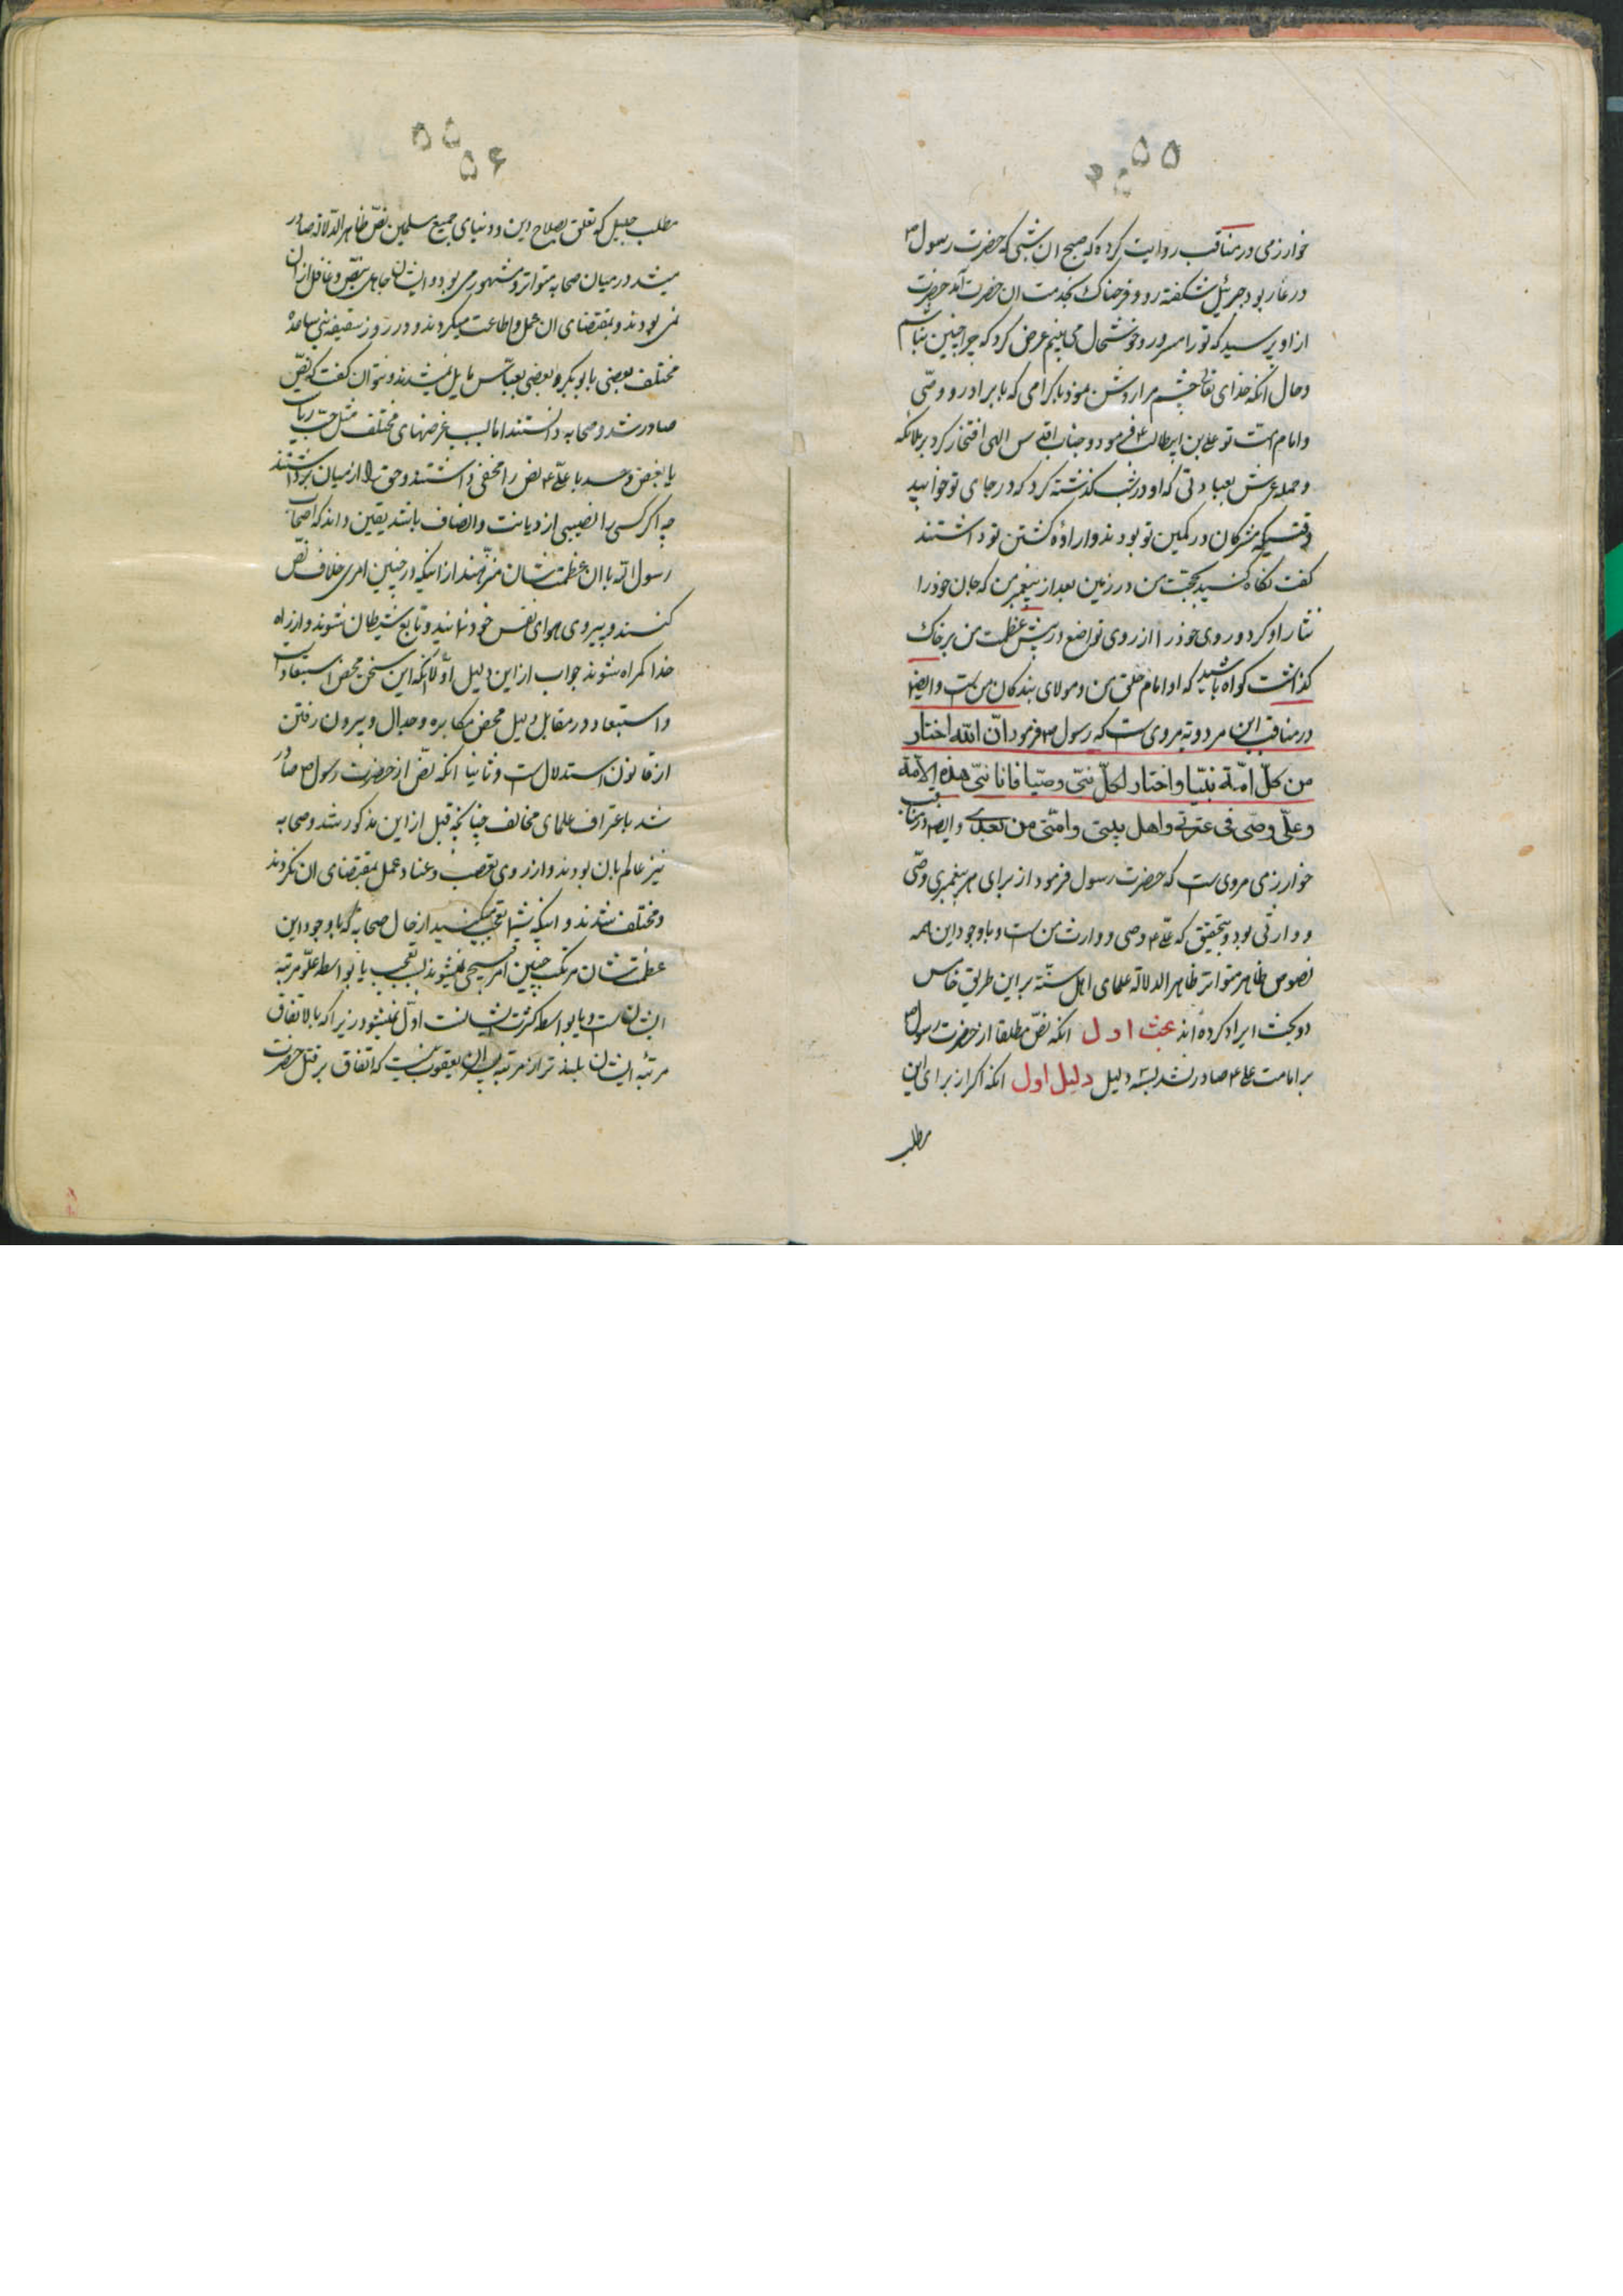 ۵۵
خوارزمی در مناقب روایت کرده که صبح ان شبی که حضرت رسول ص
در غار بود جبرئیل شکفته رو و فرحناک بخدمت ان حضرت آمد حضرت
از او پرسید که تو را مسرور و خوشحال می بینم عرض کرد که چرا چنین نباشم
و حال انکه خدای تعالی چشم مرا روشن نمود باکرامی که با برادر و وصی
و امام امت تو علی بن ابیطالب ع فرمود و جناب اقدس الهی افتخار کرد بر ملائکه
و حمله عرش بعبادتی که او در شب گذشته کرد که در جای تو خوابید
وقتیکه مشرکان در کمین تو بودند و اراده کشتن تو داشتند
کفت نکاه کنید بحجت من در زمین بعد از پیغمبر من که جان خود را
نثار او کرد و روی خود را از روی تواضع در پیش عظمت من بر خاک
گذاشت کواه باشید که او امام خلق من و مولای بندکان من است و ایضا
در مناقب ابن مردویه مروی است که رسول ص فرمود انّ اللّه اختار
من کلّ امّة نبیّا و اختار لکلّ نبیّ وصیّا فانا نبیّ هذه الامّة
و علیّ وصیّی فی عترتی و اهل بیتی و امّتی من بعدی و ایضا در مناقب
خوارزمی مروی است که حضرت رسول فرمود از برای هر پیغمبری وصی
و وارثی بود و بتحقیق که علی ع وصی و وارث من است و با وجود این همه
نصوص ظاهر متواتر ظاهر الدلاله علمای اهل سنّة بر این طریق خاص
دو بحث ایراد کرده اند بحث اول انکه نصّ مطلقا از حضرت رسول ص
بر امامت علی ع صادر نشد بسه دلیل دلیل اول انکه اکر از برای این
مطلب
۵۵
۵۶
مطلب جلیل که تعلق بصلاح دین و دنیای جمیع مسلمین نصّ ظاهر الدّلاله صادر
میشد در میان صحابه متواتر و مشهور می بود و ایشان جاهل بنصّ و غافل از ان
نمی بودند و بمقتضای ان عمل و اطاعت میکردند و در روز سقیفه بنی ساعده
مختلف بعضی بابوبکر و بعضی بعباس مایل نمیشدند و نتوان کفت که نصّ
صادر شد و صحابه دانستند اما بسبب غرضهای مختلف مثل حب ریاست
یا بغض و حسد با علی ع نص را مخفی داشتند و حق را از میان برداشتند
چه اکر کسی را نصیبی از دیانت و انصاف باشد یقین داند که اصحاب
رسول الله با ان عظمت شان منزّهند از اینکه در چنین امری خلاف نصّ
کنند و پیروی هوای نفس خود نمایند و تابع شیطان شوند و از راه
خدا کمراه شوند جواب از این دلیل اولا انکه این سخن محض استبعاد است
و استبعاد در مقابل دلیل محض مکابره و جدال و بیرون رفتن
از قانون استدلال است و ثانیا انکه نصّ از حضرت رسول ص صادر
شد باعتراف علمای مخالف چنانچه قبل از این مذکور شد و صحابه
نیز عالم بان بودند و از روی تعصب و عناد عمل بمقتضای ان نکردند
و مختلف شدند و اینکه شما تعجب میکنید از حال صحابه که با وجود این
عظمت شان مرتکب چنین امر قبیحی نمیشوند تعجب یا بواسطه علو مرتبه
ایشان است و یا بواسطه کثرت ایشانست اول نمیشود زیرا که بالاتفاق
مرتبه ایشان بلندتر از مرتبه پسران یعقوب نیست که اتفاق بر قتل حضرت